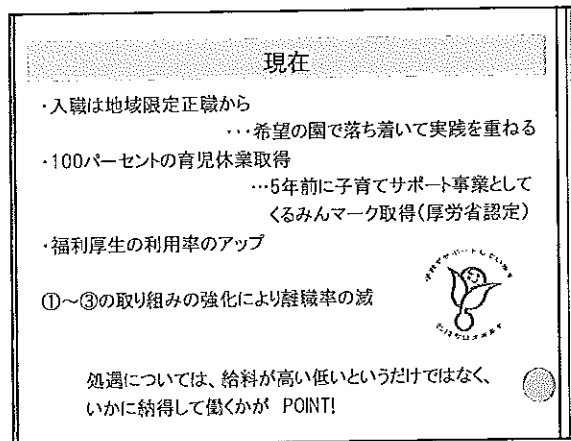 現在
・入職は地域限定正職から
・・・希望の園で落ち着いて実践を重ねる
・100パーセントの育児休業取得
…5年前に子育てサポート事業として
くるみんマーク取得(厚労省認定)
・福利厚生の利用率のアップ
①～③の取り組みの強化により離職率の減
子育てサポートしています
処遇については、給料が高い低いというだけではなく、
いかに納得して働くかが POINT!